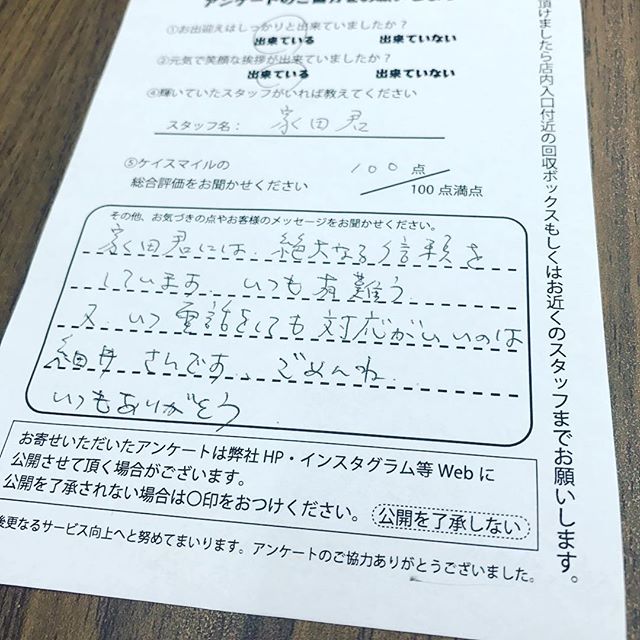 アンケートのご協力をお願いします
①お出迎えはしっかりと出来ていましたか？
出来ている　出来ていない
③元気で笑顔な挨拶が出来ていましたか？
出来ている　出来ていない
④輝いていたスタッフがいれば教えてください
スタッフ名： 家田君
⑤ケイスマイルの
総合評価をお聞かせください
100 点
100 点満点
その他、お気づきの点やお客様のメッセージをお聞かせください。
家田君には、絶大なる信頼を
しています。いつも有難う。
又いつ電話をしても対応がいいのは
細井さんです。ごめんね。
いつもありがとう
お寄せいただいたアンケートは弊社 HP・インスタグラム等 Web に
公開させて頂く場合がございます。
公開を了承されない場合は〇印をおつけください。 公開を了承しない
後更なるサービス向上へと努めてまいります。アンケートのご協力ありがとうございました。
頂けましたら店内入口付近の回収ボックスもしくはお近くのスタッフまでお願いします。